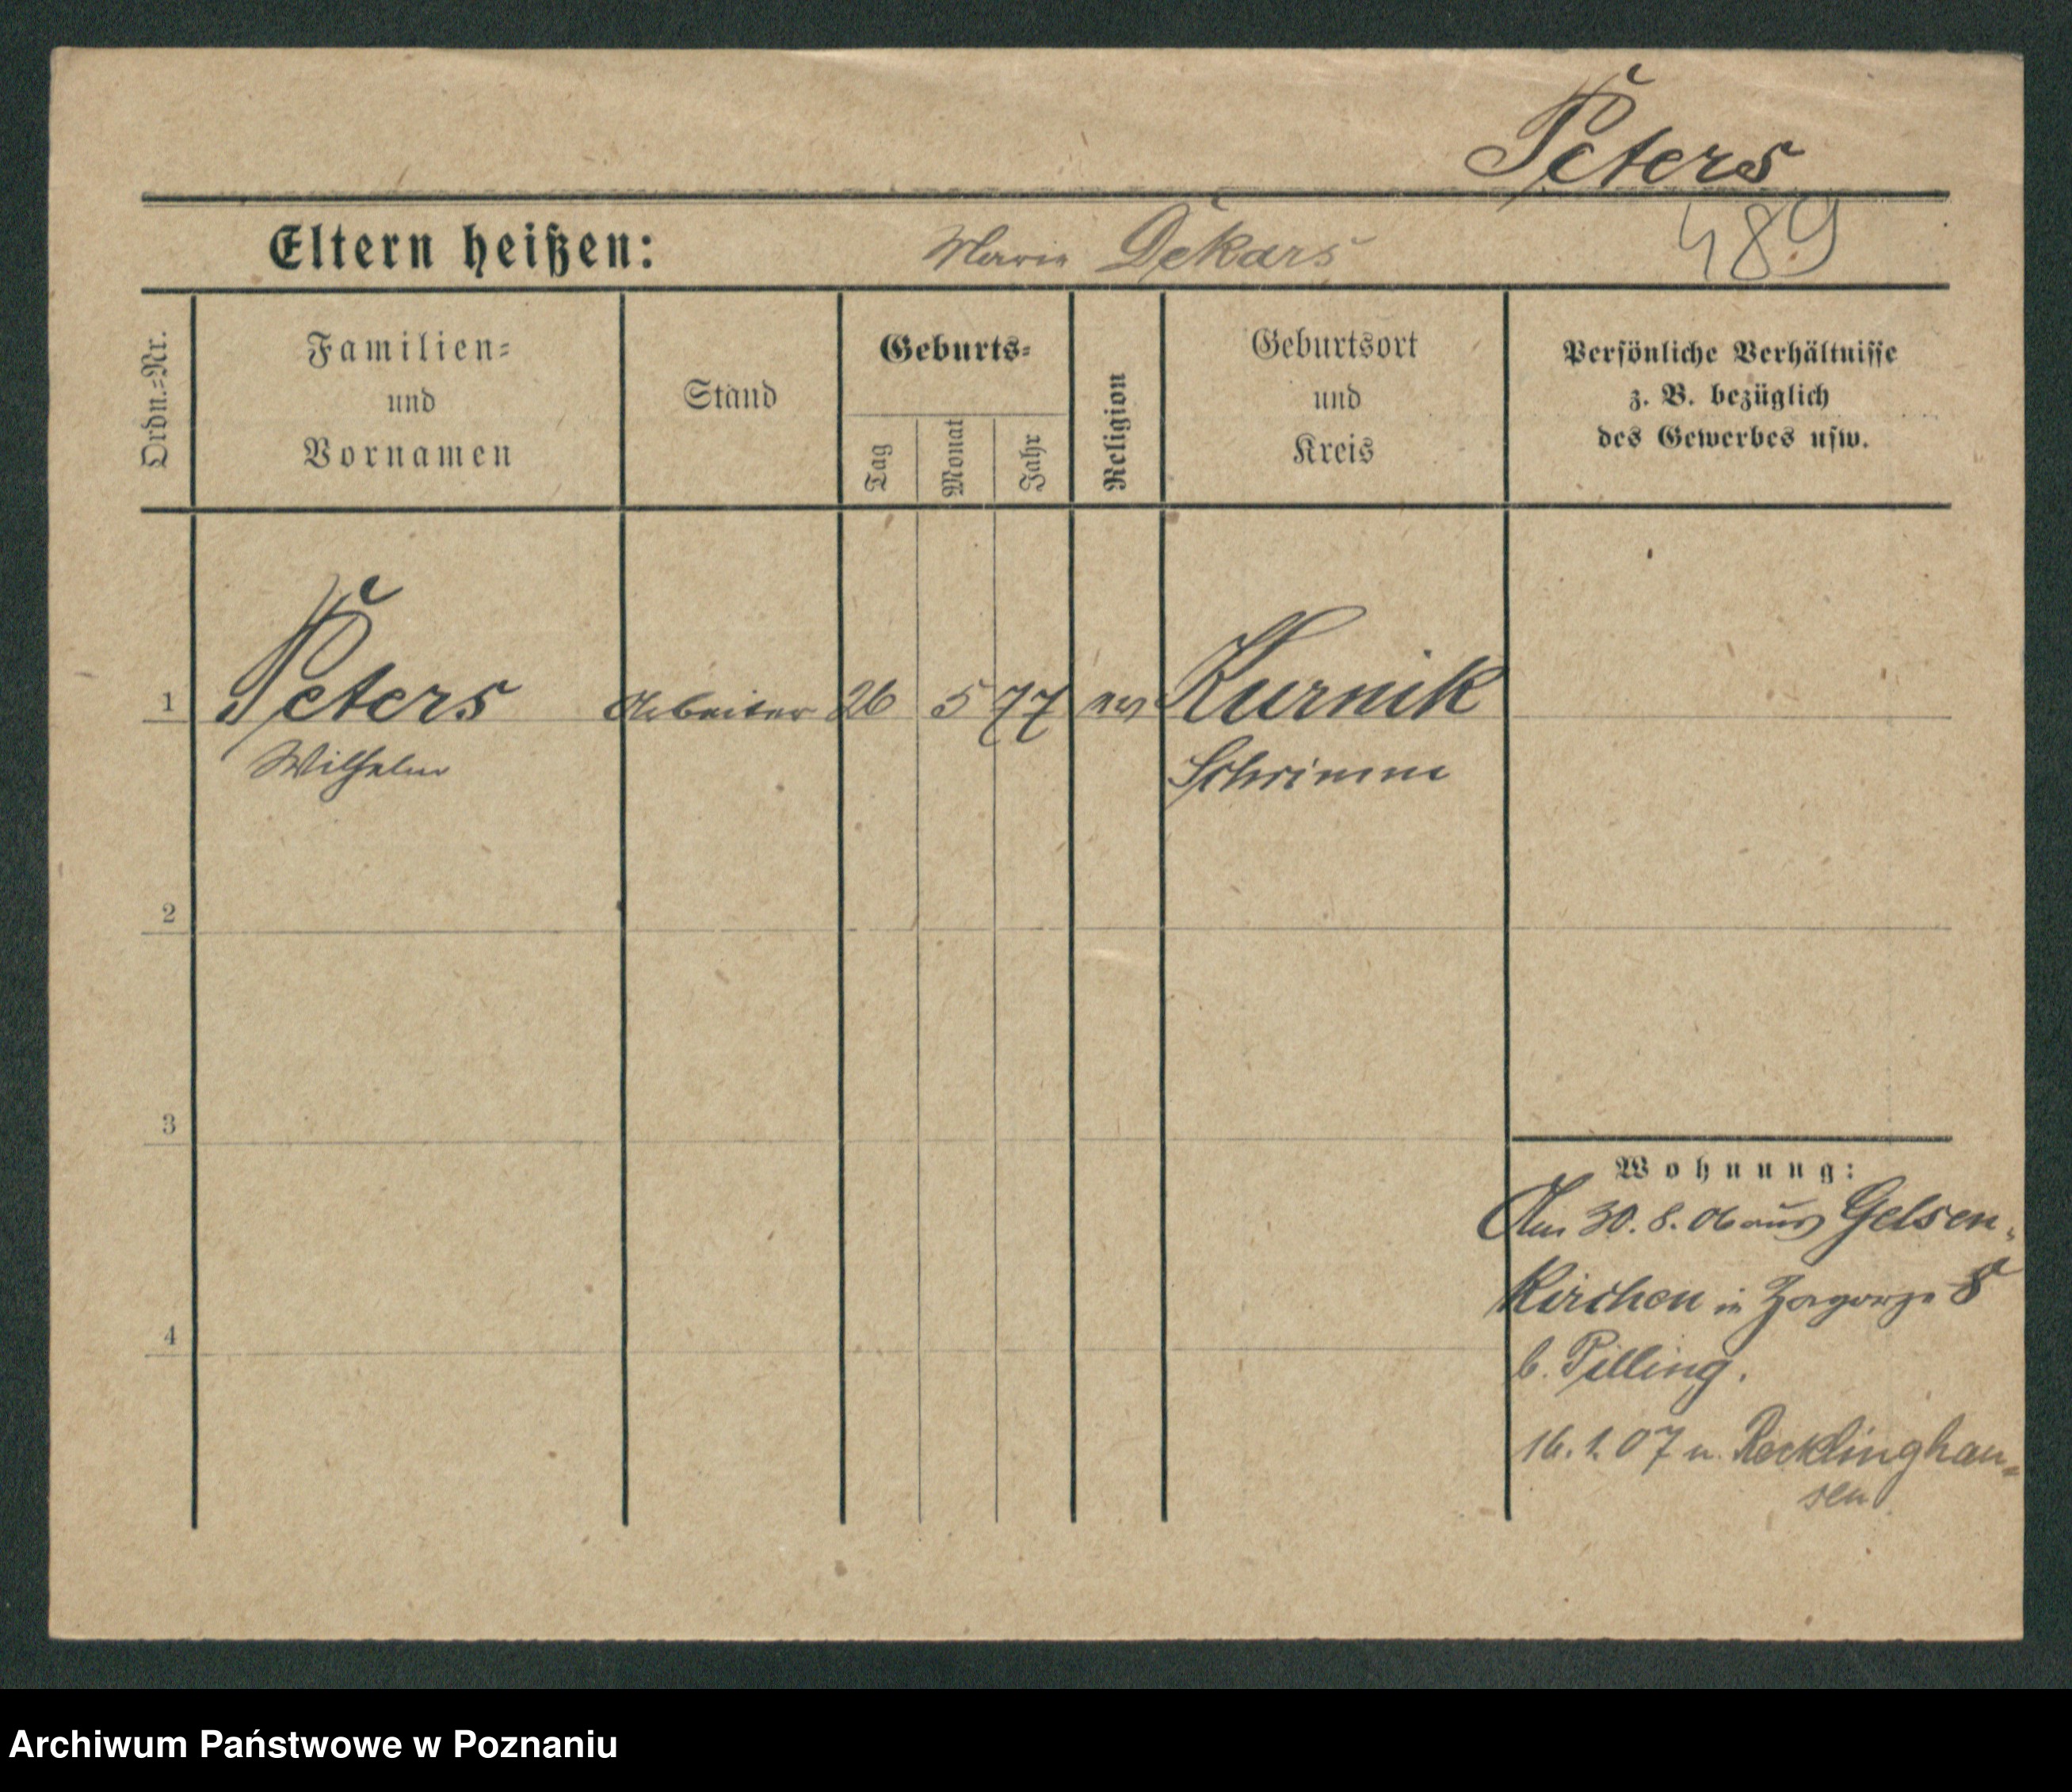 Peters
489
Eltern heißen: Marie Dekars
Ordn.=Nr.
Familien=
und
Vornamen
Stand
Geburts=
Tag
Monat
Jahr
Religion
Geburtsort
und
Kreis
Persönliche Verhältnisse
z. B. bezüglich
des Gewerbes usw.
1 Peters Arbeiter 26 5 77 ev Kurnik
Wilhelm Schrimm
2
3
4
Wohnung:
Am 30. 8. 06 aus Gelsen-
kirchen in Zagorze 8
b. Pilling.
16. 1. 07 n. Recklinghau=
sen
Archiwum Państwowe w Poznaniu